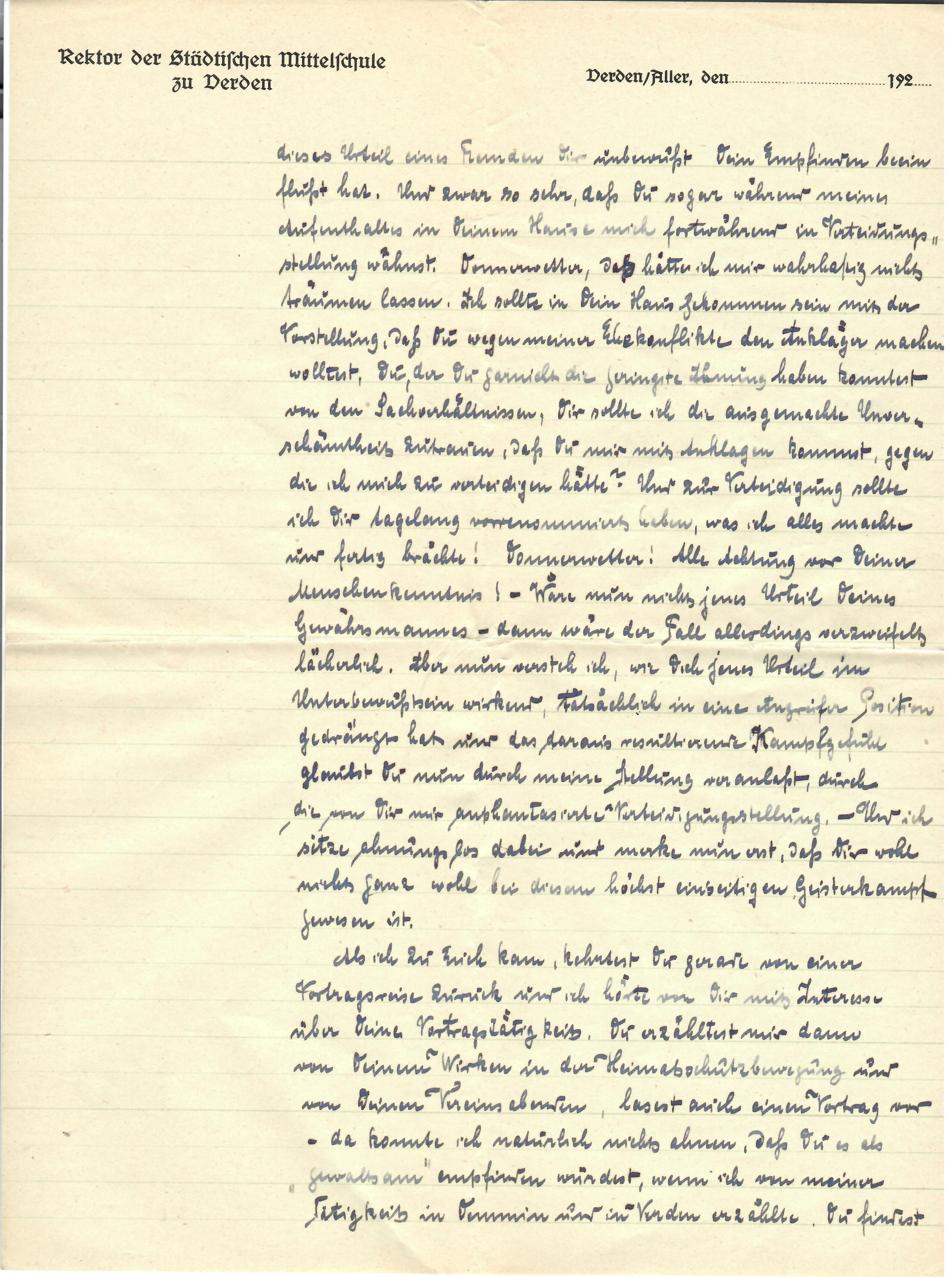 Rektor der Städtischen Mittelschule
zu Verden
Verden/Aller, den 192
dieses Urteil eines Fremden Dir unbewußt Dein Empfinden beein
flußt hat. Und zwar so sehr, daß Du sogar während meines
Aufenthaltes in Deinem Hause mich fortwährend in Verteidungs„
stellung wähnst. Donnerwetter, daß hätte ich mir wahrhaftig nicht
träumen lassen. Ich sollte in Dein Haus gekommen sein mit der
Vorstellung, daß Du wegen meiner Ehekonflikte den Ankläger machen
wolltest, Du, der Du garnicht die geringste Ahnung haben konntest
von den Sachverhältnissen, Dir sollte ich die ausgemachte Unver„
schämtheit zutrauen, daß Du mir mit Anklagen kommst, gegen
die ich mich zu verteidigen hätte? Und zur Verteidigung sollte
ich Dir tagelang vorrenommiert haben, was ich alles machte
und fertig brächte! Donnerwetter! Alle Achtung vor Deiner
Menschenkenntnis! – Wäre nun nicht jenes Urteil Deines
Gewährsmannes – dann wäre der Fall allerdings verzweifelt
lächerlich. Aber nun versteh ich, wie Dich jenes Urteil im
Unterbewußtsein wirkend, tatsächlich in eine Angreifer Position
gedrängt hat und das daraus resultierende Kampfgefühl
glaubst Du nun durch meine Stellung veranlaßt, durch
die von Dir mir anphantasierte Verteidigungsstellung. – Und ich
sitze ahnungslos dabei und merke nun erst, daß Dir wohl
nicht ganz wohl bei diesem höchst einseitigen Geisterkampf
gewesen ist.
Als ich zu Euch kam, kehrtest Du gerade von einer
Vortragsreise zurück und ich hörte von Dir mit Interesse
über Deine Vortragstätigkeit. Du erzähltest mir dann
von Deinem Wirken in der Heimatschutzbewegung und
von Deinen Vereinsabenden, lasest auch einen Vortrag vor
– da konnte ich natürlich nicht ahnen, daß Du es als
„gewaltsam" empfinden würdest, wenn ich von meiner
Tätigkeit in Demmin und in Verden erzählte. Du findest